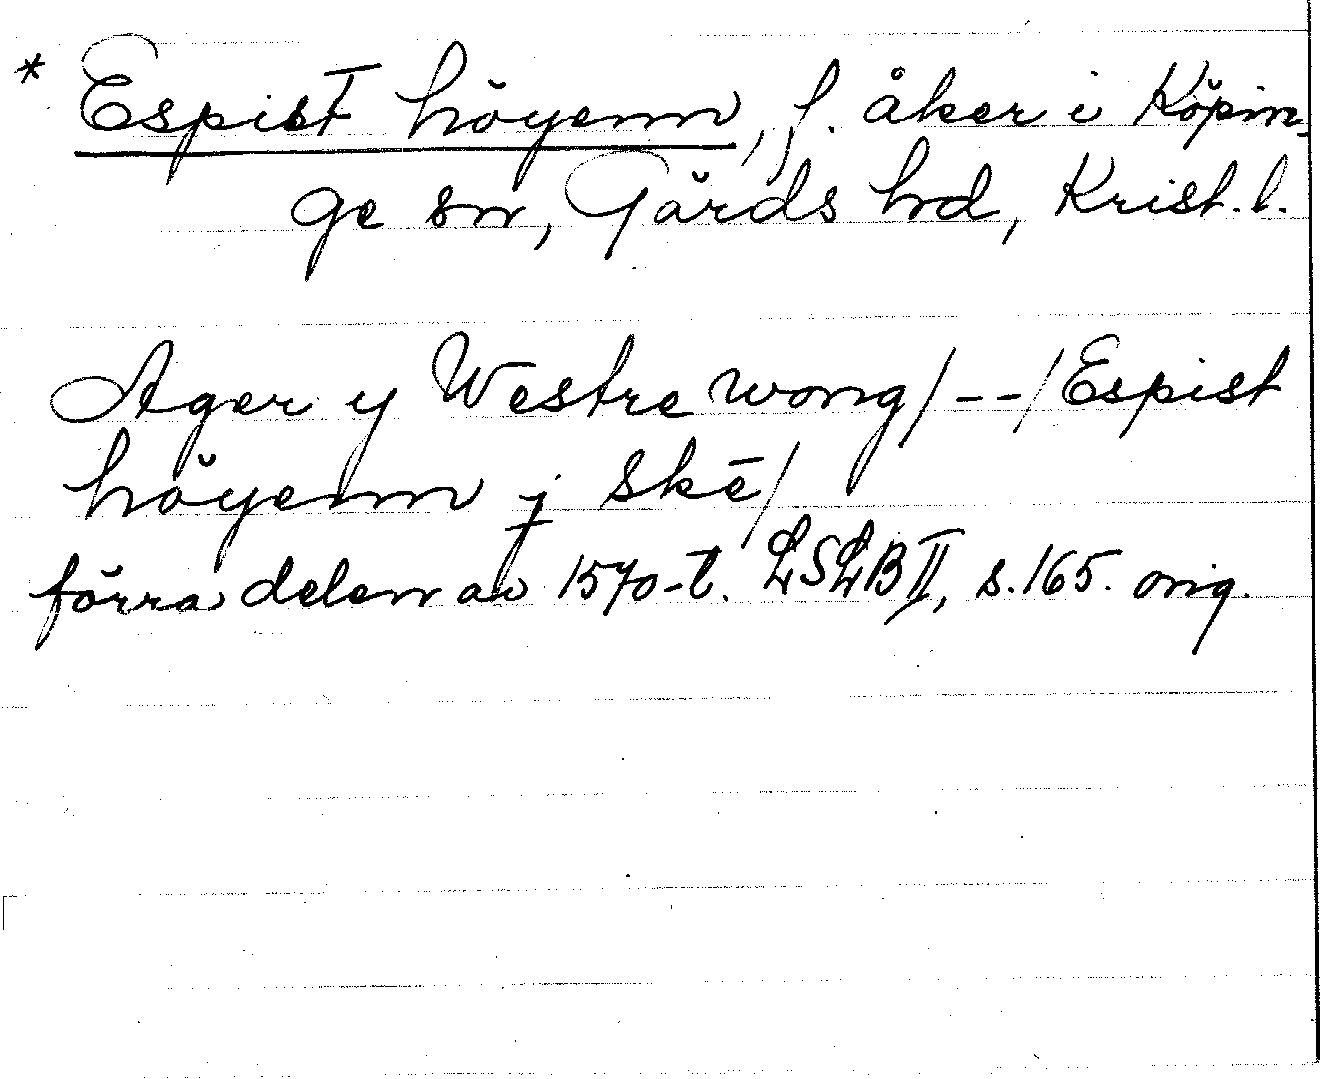 * Espist höyenn, f. åker i Köpin-
ge sn, Gärds hd, Krist. l.
Ager y Westre wong/--/Espist
höyenn j skē/
förra delen av 1570-t. LSLB II, s. 165. orig.